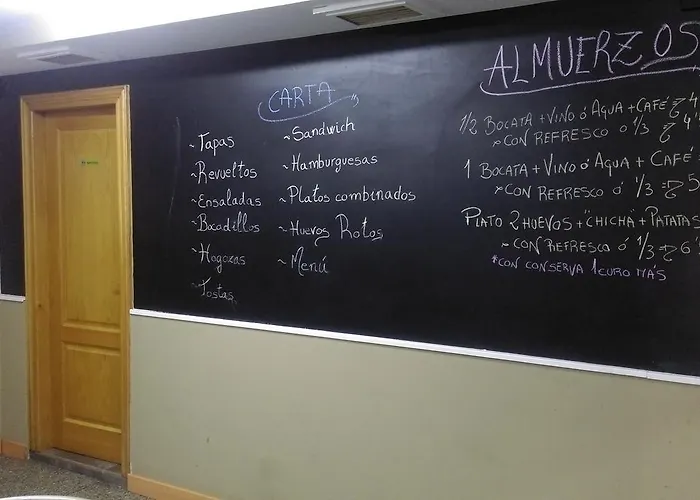 CARTA
~Tapas
~Revueltos
~Ensaladas
~Bocadillos
~Hogazas
~Tostas
~Sandwich
~Hamburguesas
~Platos combinados
~Huevos Rotos
~Menú
ALMUERZOS
1/2 BOCATA + VINO ó AGUA + CAFÉ
CON REFRESCO ó 1/3
1 BOCATA + VINO ó AGUA + CAFÉ
CON REFRESCO ó 1/3 5
PLATO 2 HUEVOS + "CHICHA" + PATATAS
CON REFRESCO ó 1/3 6
*CON CONSERVA 1 EURO MÁS